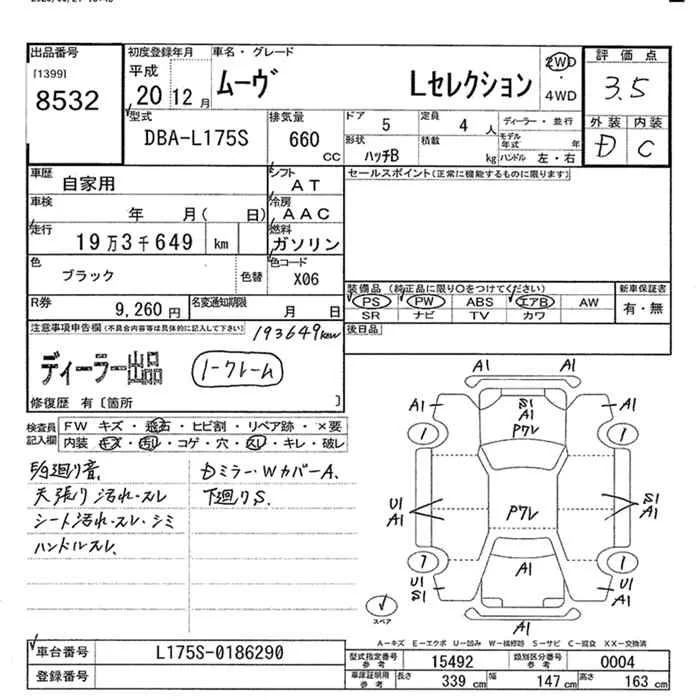 出品番号
[1399]
8532
初度登録年月
平成
20 12 月
車名・グレード
ムーヴ Lセレクション
2WD
・
4WD
評価点
3.5
外装 内装
D C
型式
DBA-L175S
排気量
660
CC
ドア 5
定員 4 人
ディーラー・並行
形状 ハッチB
積載 kg
モデル年式 年
ハンドル 左・右
車歴
自家用
シフト
AT
セールスポイント(正常に機能するものに限ります)
車検
年 月( 日)
冷房
AAC
走行
19万3千649 km
燃料
ガソリン
色
ブラック
色替
色コード
X06
装備品(純正品に限り○をつけてください)
PS PW ABS エアB AW
SR ナビ TV カワ
新車保証書
有・無
R券
9,260 円
名変通知期限
月 日
後日品
注意事項申告欄(不具合内容等は具体的に記入して下さい)
193649km
ディーラー出品
1-クレーム
修復歴 有〔箇所 〕
検査員記入欄
FW キズ・飛石・ヒビ割・リペア跡・×要
内装 キズ・汚れ・コゲ・穴・スレ・キレ・破レ
廻り音.
天張り汚れ・スレ
シート汚れ・スレ・シミ
ハンドルスレ.
Dミラー・WカバーA.
下廻りS.
A1
A1
A1
A1
S1
A1
Pアレ
1
1
U1
A1
S1
A1
Pアレ
A1
1
U1
S1
U1
A1
A1
スペア
A-キズ E-エクボ U-凹み W-補修跡 S-サビ C-腐食 XX-交換済
車台番号
L175S-0186290
登録番号
型式指定番号
参考
15492
類別区分番号
参考
0004
車庫証明用
参考
長さ 339 cm
幅 147 cm
高さ 163 cm